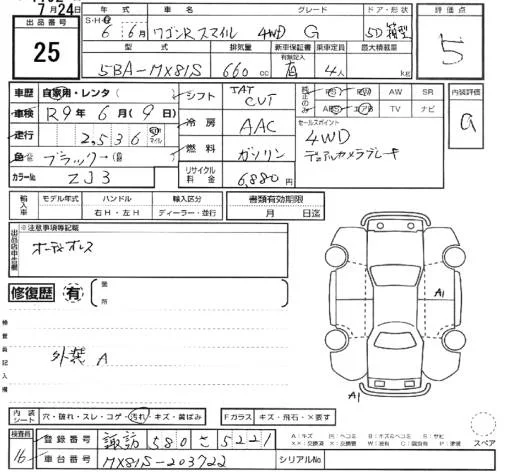 7月24日
出品番号
25
年式 車名 グレード ドア・形状
S・H・R 6年 6月 ワゴンRスマイル 4WD G 5D 箱型
型式 排気量 新車保証書 有無記入 乗車定員 最大積載量
5BA-MX81S 660cc 有 4人 kg
評価点
5
車歴 自家用・レンタ( )
車検 R9年6月(9日)
走行 2,536 km マイル
色 ブラック→(
カラーNo. ZJ3
シフト IAT CVT
冷房 AAC
燃料 ガソリン
リサイクル料金 6,880円
純正のみ PS PW AW SR
ABS エアB TV ナビ
セールスポイント
4WD
デュアルカメラブレーキ
内装評価
a
輸入車 モデル年式 ハンドル 右H・左H 輸入区分 ディーラー・並行
書類有効期限
月 日迄
出品店申告欄
※注意事項等記載
オーディオレス
修復歴 有 箇所
検査員記入欄
外装 A
A1
A1
内装シート 穴・破れ・スレ・コゲ・汚れ・キズ・黄ばみ
Fガラス キズ・飛石・×要す
検査員
16
登録番号 諏訪 580 さ 5221
車台番号 MX81S-203722
シリアルNo.
A:キズ
××:交換済 X:交換
スペア